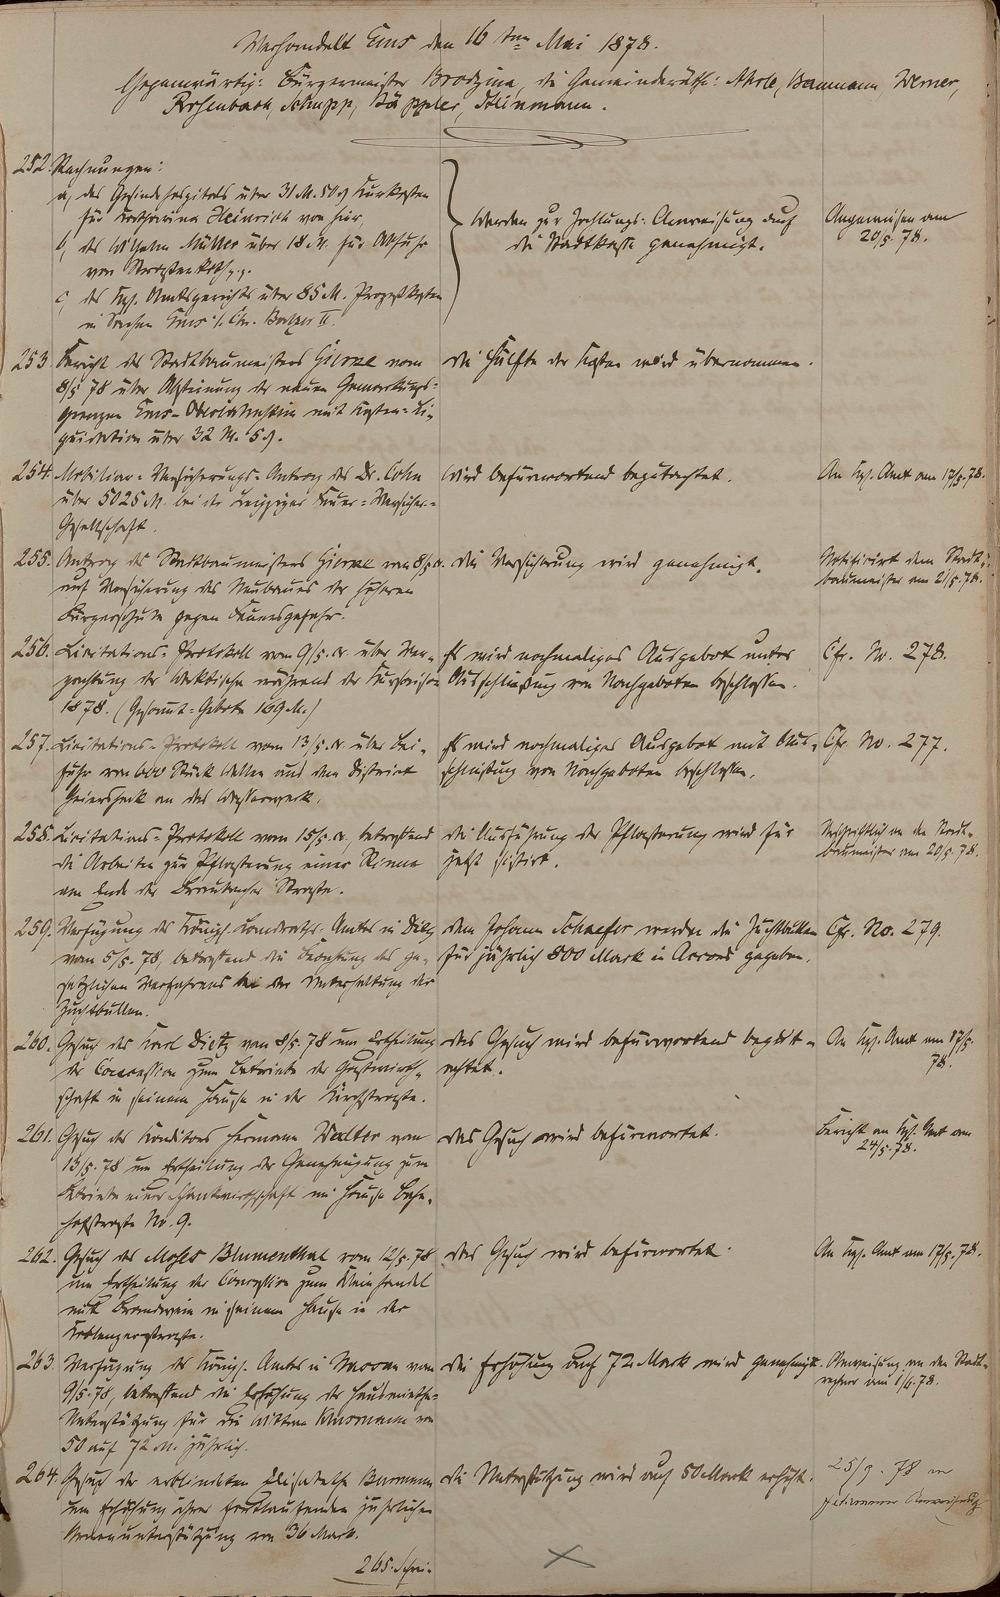 Verhandelt Ems den 16ten Mai 1878.
Gegenwärtig: Bürgermeister Brodzina, die Gemeinderäthe: Ahrle, Baumann, Werner,
Rosenbach, Schupp, Däppler, Steinmann.
252. Rechnungen:
a, des Gesindehospitals über 31 M. 50 d Kurkosten
für Katharina Heinrich von hier
b, des Wilhelm Müller über 18 M. für Abfuhr
von Straßenkoth pp.
c, des Kgl. Amtsgerichts über 85 M. Prozeßkosten
in Sachen Ems ./. Chr. Balzer II.
werden zur Zahlungs-Anweisung auf
die Stadtkasse genehmigt.
Angewiesen am
20/5. 78.
253. Bericht des Stadtbaumeisters vom
8/5 78 über Absteinung der neuen Gemarkungs-
grenzen Ems-Oberlahnstein mit Kosten-Li-
quidation über 32 M. 5 d.
die Hälfte der Kosten wird übernommen.
254. Mobiliar-Versicherungs-Antrag des Dr. Cohn
über 5025 M. bei der Leipziger Feuer-Versicher-
Gesellschaft.
Wird befürwortend begutachtet.
An Kgl. Amt am 17/5. 78.
255. Antrag des Stadtbaumeisters vom 8/5 cr.
auf Versicherung des Neubaues der höheren
Bürgerschule gegen Feuersgefahr.
die Versicherung wird genehmigt.
Notificirt dem Stadt-
baumeister am 21/5. 78.
256. Licitations-Protokoll vom 9/5. cr. über Ver-
pachtung der während der Kursaison
1878. (Gesammt-Gebote 169 M.)
Es wird nochmaliges Ausgebot unter
Ausschließung von Nachgeboten beschlossen.
Cfr. No. 278.
257. Licitations-Protokoll vom 13/5. cr. über Bei-
fuhr von 600 Stück Wellen aus dem District
an das Wasserwerk.
Es wird nochmaliges Ausgebot mit Aus-
schließung von Nachgeboten beschlossen.
Cfr. No. 277.
258. Licitations-Protokoll vom 15/5. cr., betreffend
die Arbeiten zur Pflasterung einer Rinne
am Ende der Braubacher Straße.
die Ausführung der Pflasterung wird für
jetzt sistirt.
Abschriftlich an den Stadt-
baumeister am 20/5. 78.
259. Verfügung des Königl. Landraths-Amtes in Diez
vom 5/5. 78, betreffend die Beachtung des ge-
setzlichen Verfahrens bei der Unterhaltung der
Zuchtbullen.
dem Johann Schaefer werden die Zuchtbullen
für jährlich 800 Mark in Accord gegeben.
Cfr. No. 279.
260. Gesuch des Karl Dietz vom 8/5. 78 um Ertheilung
der Concession zum Betriebe der Gastwirth-
schaft in seinem Hause in der Kirchstraße.
Das Gesuch wird befürwortend begut-
achtet.
An Kgl. Amt am 17/5.
78.
261. Gesuch des Konditors Hermann Walter vom
13/5. 78 um Ertheilung der Genehmigung zum
Betriebe einer Schankwirthschaft im Hause Bahn-
hofstraße No. 9.
Das Gesuch wird befürwortet.
Bericht an Kgl. Amt am
24/5. 78.
262. Gesuch des Moses Blumenthal vom 12/5. 78
um Ertheilung der Concession zum Kleinhandel
mit Branntwein in seinem Hause in der
Koblenzerstraße.
Das Gesuch wird befürwortet.
An Kgl. Amt am 17/5. 78.
263. Verfügung des Königl. Amtes in Nassau vom
9/5. 78, betreffend die Erhöhung der Hausmiethe-
Unterstützung für die Wittwe von
50 auf 72 M. jährlich.
die Erhöhung auf 72 Mark wird genehmigt.
Anweisung an den Stadt-
rechner am 1/6. 78.
264. Gesuch der erblindeten Elisabethe
um Erhöhung ihrer fortlaufenden jährlichen
Armenunterstützung von 36 Mark.
die Unterstützung wird auf 50 Mark erhöht.
25/9. 78
Anweisung
265. Schrei-